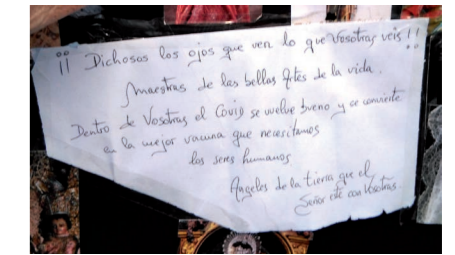 ¡¡ Dichosos los ojos que ven lo que Vosotras veis !!
Maestras de las bellas Artes de la vida.
Dentro de Vosotras el Covid se vuelve bueno y se convierte
en la mejor vacuna que necesitamos
los seres humanos
Angeles de la tierra que el
Señor esté con Vosotras.